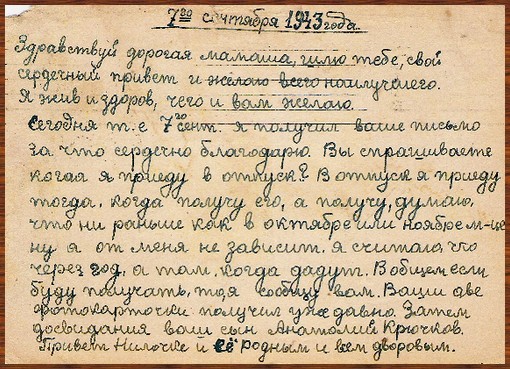 7го сентября 1943 года.
Здравствуй дорогая мамаша, шлю тебе, свой
сердечный привет и желаю всего наилучшего.
Я жив и здоров, чего и вам желаю.
Сегодня т.е 7го сент. я получил ваше письмо
за что сердечно благодарю. Вы спрашиваете
когда я приеду в отпуск? В отпуск я приеду
тогда, когда получу его, а получу, думаю,
что ни раньше как в октябре или ноябре м-це
ну я от меня не зависит. Я считаю, что
через год, а там, когда дадут. В общем если
буду получать, то я сообщу вам. Ваши две
фотокарточки получил уже давно. Затем
досвидания ваш сын Анатолий Крючков.
Привет Ниночке и её родным и всем дворовым.